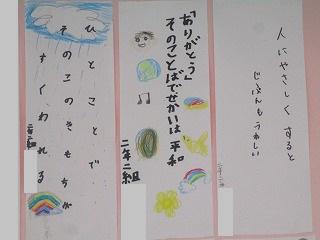 人にやさしく すると
じぶんも うれしい
二年二組
「ありがとう」
そのことばでせかいは 平和
二年二組
ひとことで
そのこのきもちが
すくわれる
二年二組